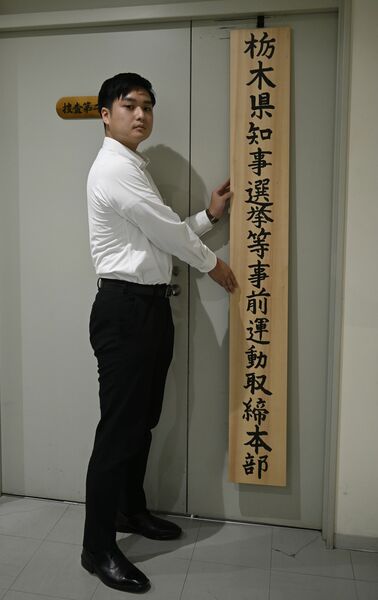 捜査第二
栃木県知事選挙等事前運動取締本部